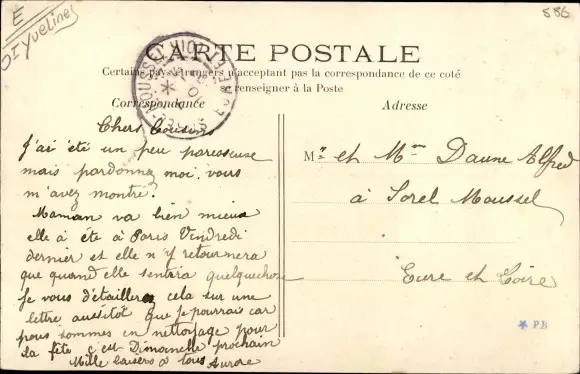 E
Yvelines
586
CARTE POSTALE
Certains pays étrangers n'acceptant pas la correspondance de ce coté
se renseigner à la Poste
Correspondance
Adresse
SOREL-MOUSSEL
Chers Cousins
J'ai été un peu paresseuse
mais pardonnez moi, vous
m'avez montré.
Maman va bien mieux
elle à été à Paris Vendredi
dernier et elle n'y retournera
que quand elle sentira quelquechose
Je vous d'étaillerez cela sur une
lettre aussitôt que je pourrais car
nous sommes en nettoyage pour
la fête c'est Dimanche prochain
Mille baisers à tous
Aurore
Mr et Mme Daune Alfred
à Sorel Moussel
Eure et Loire
PB